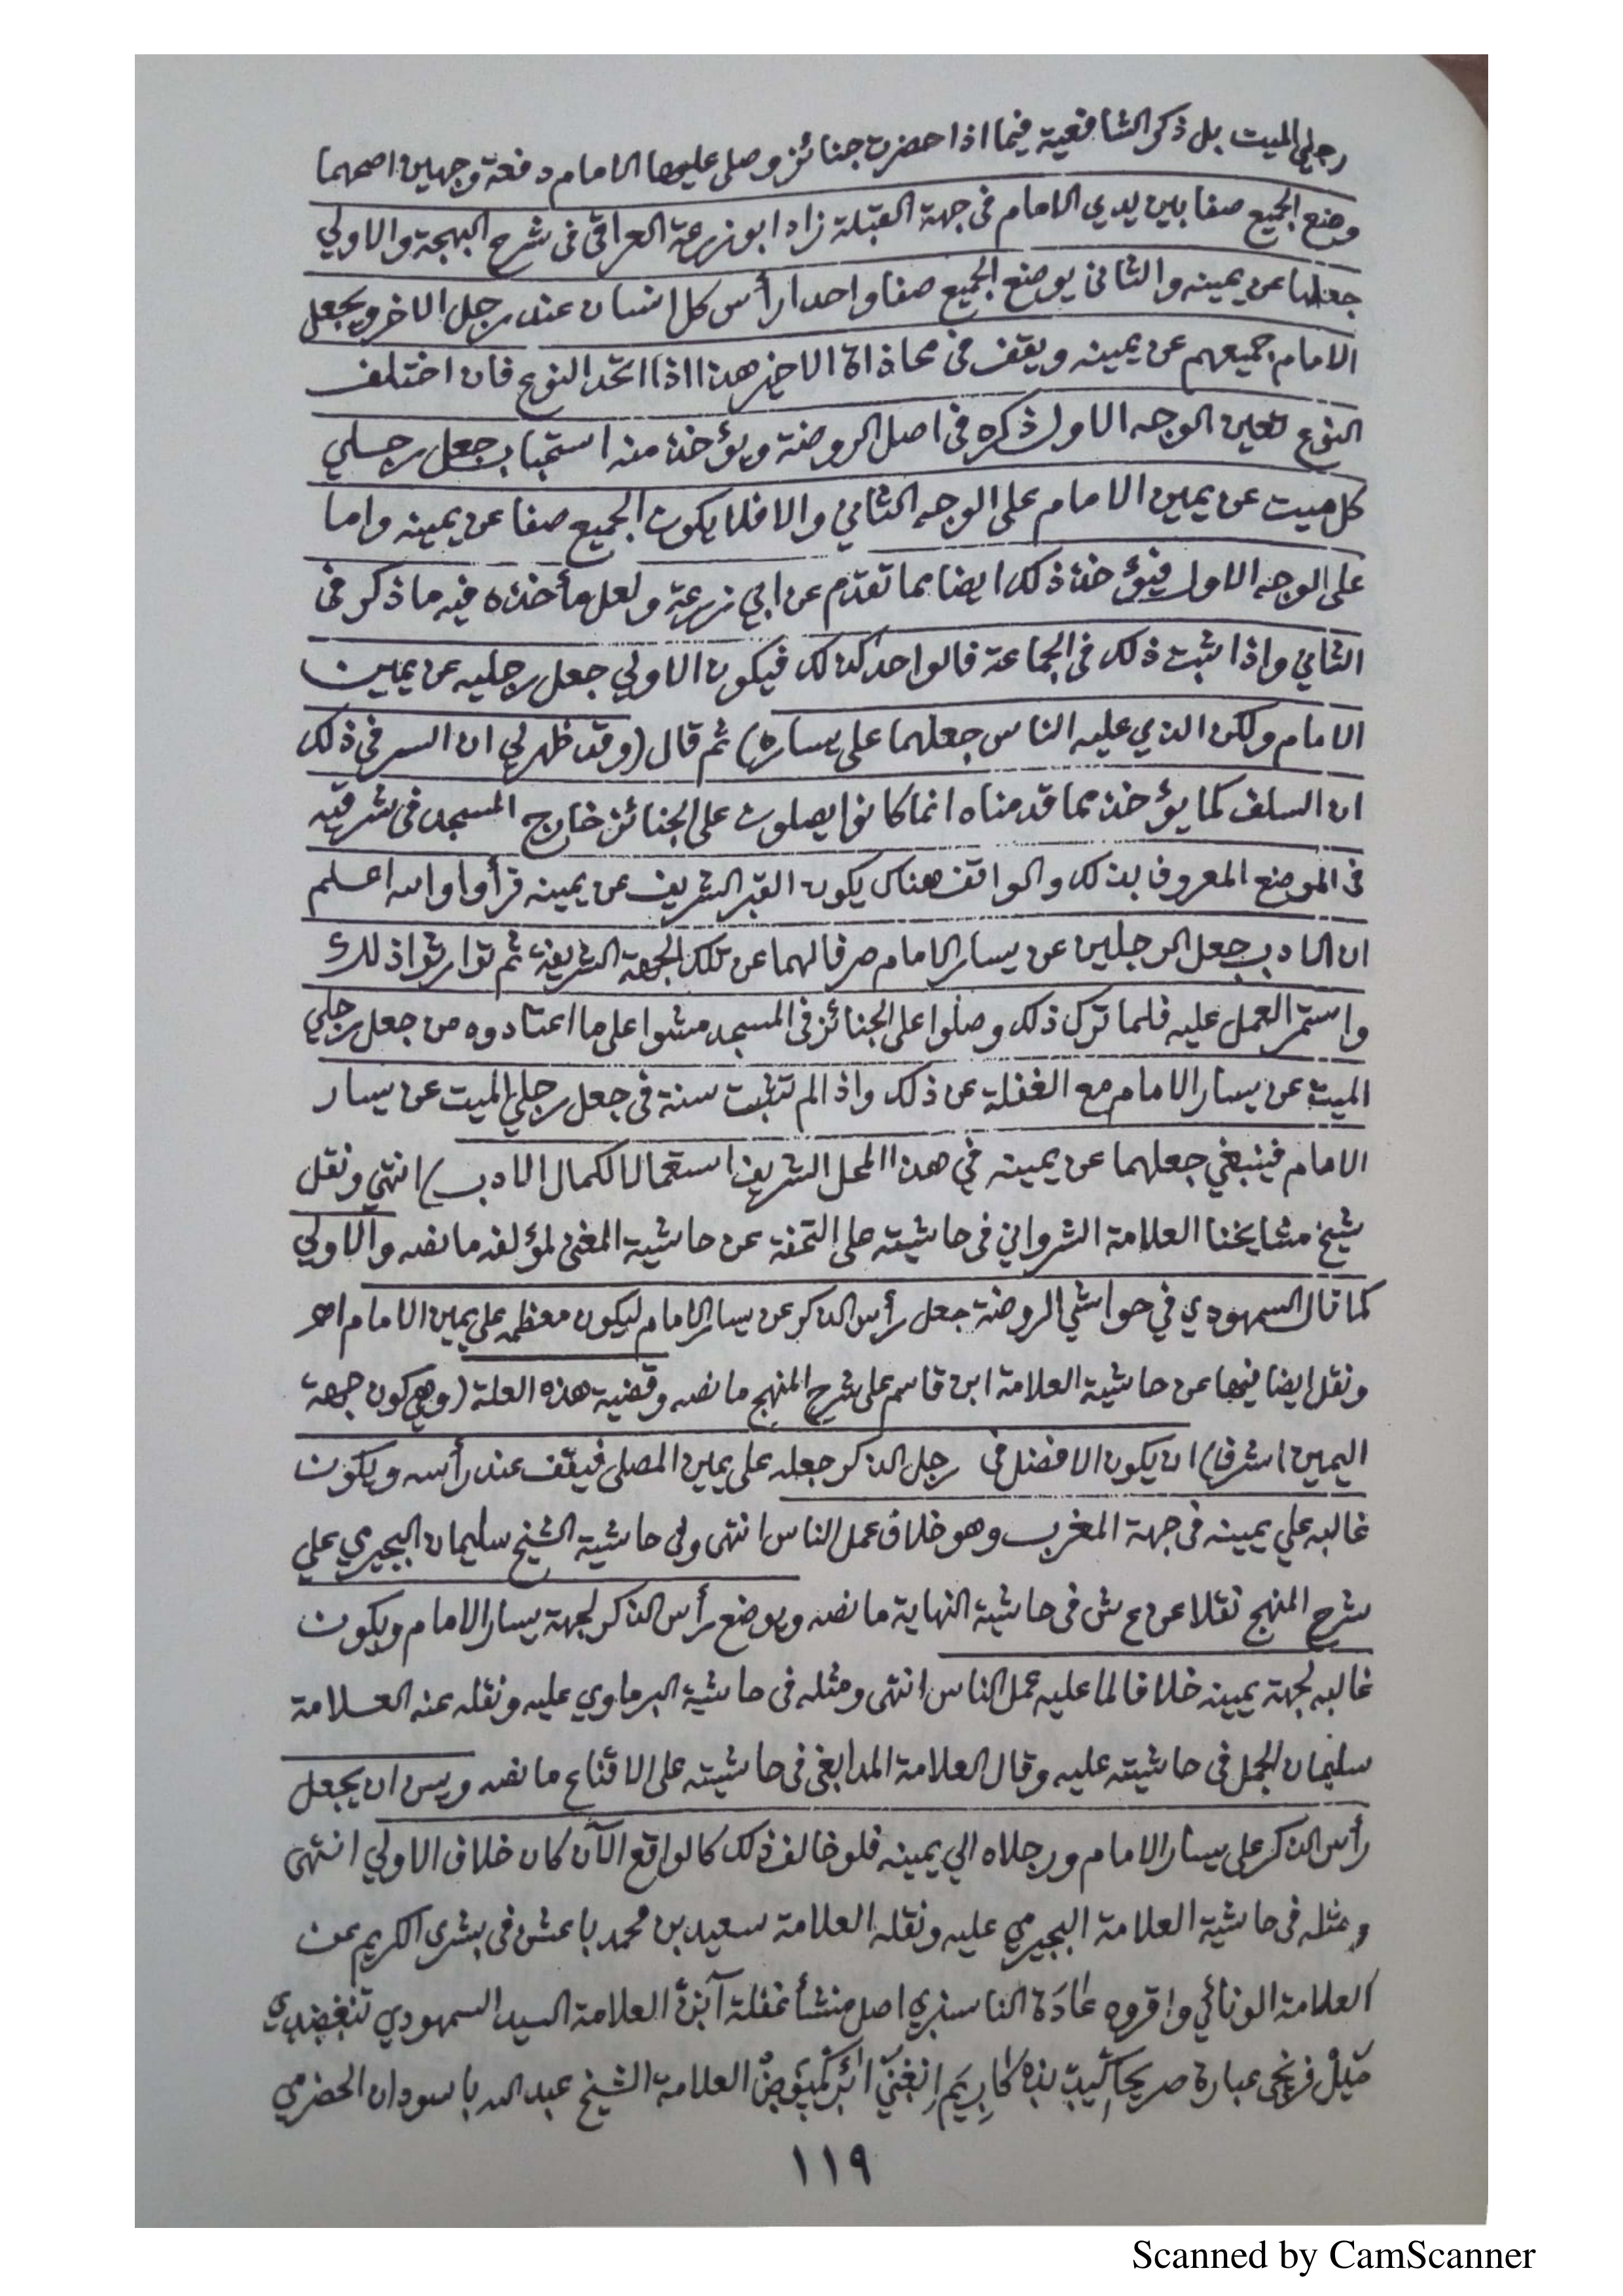 رجلي الميت بل ذكر الشافعية فيما اذا حضرت جنائز وصلى عليها الامام دفعة وجهين اصحهما
وضع الجميع صفا بين يدي الامام فى جهة القبلة زاد ابو زرعة العراقى فى شرح البهجة والاولي
جعلها عن يمينه والثانى يوضع الجميع صفا واحدا رأس كل انسان عند رجل الاخر ويجعل
الامام جميعهم عن يمينه ويقف فى محاذاة الاخير هذا اذا اتحد النوع فان اختلف
النوع تعين الوجه الاول ذكره فى اصل الروضة ويؤخذ منه استحباب جعل رجلي
كل ميت عن يمين الامام على الوجه الثاني والا فلا يكون الجميع صفا عن يمينه واما
على الوجه الاول فيؤخذ ذلك ايضا مما تقدم عن ابي زرعة ولعل مأخذه فيه ما ذكر فى
الثاني واذا ثبت ذلك فى الجماعة فالواحد كذلك فيكون الاولي جعل رجليه عن يمين
الامام ولكن الذي عليه الناس جعلهما على يساره) ثم قال (وقد ظهر لي ان السر فى ذلك
ان السلف كما يؤخذ مما قدمناه انما كانوا يصلون على الجنائز خارج المسجد فى شرقيه
فى الموضع المعروف بذلك والواقف هناك يكون القبر الشريف عن يمينه فرأوا والله اعلم
ان الادب جعل الرجلين عن يسار الامام صرفا لهما عن تلك الجهة الشريفة ثم توارثوا ذلك
واستمر العمل عليه فلما ترك ذلك وصلوا على الجنائز فى المسجد مشوا على ما اعتادوه من جعل رجلي
الميت عن يسار الامام مع الغفلة عن ذلك واذا لم تثبت سنة فى جعل رجلي الميت عن يسار
الامام فينبغي جعلهما عن يمينه في هذا المحل الشريف استعمالا لكمال الادب) انتهى ونقل
شيخ مشايخنا العلامة الشرواني فى حاشيته على التحفة عن حاشية المغنى لمؤلفه ما نصه والاولي
كما قال السمهودي في حواشي الروضة جعل رأس الذكر عن يسار الامام ليكون معظمه على يمين الامام اهـ
ونقل ايضا فيها عن حاشية العلامة ابن قاسم على شرح المنهج ما نصه وقضية هذه العلة (وهي كون جهة
اليمين اشرف) ان يكون الافضل فى رجل الذكر جعله على يمين المصلى فيقف عند رأسه ويكون
غالبه علي يمينه فى جهة المغرب وهو خلاف عمل الناس انتهى وفي حاشية الشيخ سليمان البجيرمي علي
شرح المنهج نقلا عن ع ش فى حاشية النهاية ما نصه ويوضع رأس الذكر لجهة يسار الامام ويكون
غالبه لجهة يمينه خلافا لما عليه عمل الناس انتهى ومثله فى حاشية البرماوي عليه ونقله عنه العلامة
سليمان الجمل فى حاشيته عليه وقال العلامة المدابغى فى حاشيته على الاقناع ما نصه ويسن ان يجعل
رأس الذكر على يسار الامام ورجلاه الي يمينه فلو خالف ذلك كالواقع الآن كان خلاف الاولي انتهى
ومثله فى حاشية العلامة البجيرمي عليه ونقله العلامة سعيد بن محمد باعشن فى بشرى الكريم عن
العلامة الونائي واقروه عادة الناسنري اصل منشأ غفلة آنن العلامة السيد السمهودي
عبارة العلامة الشيخ عبد الله باسودان الحضرمي
١١٩
Scanned by CamScanner